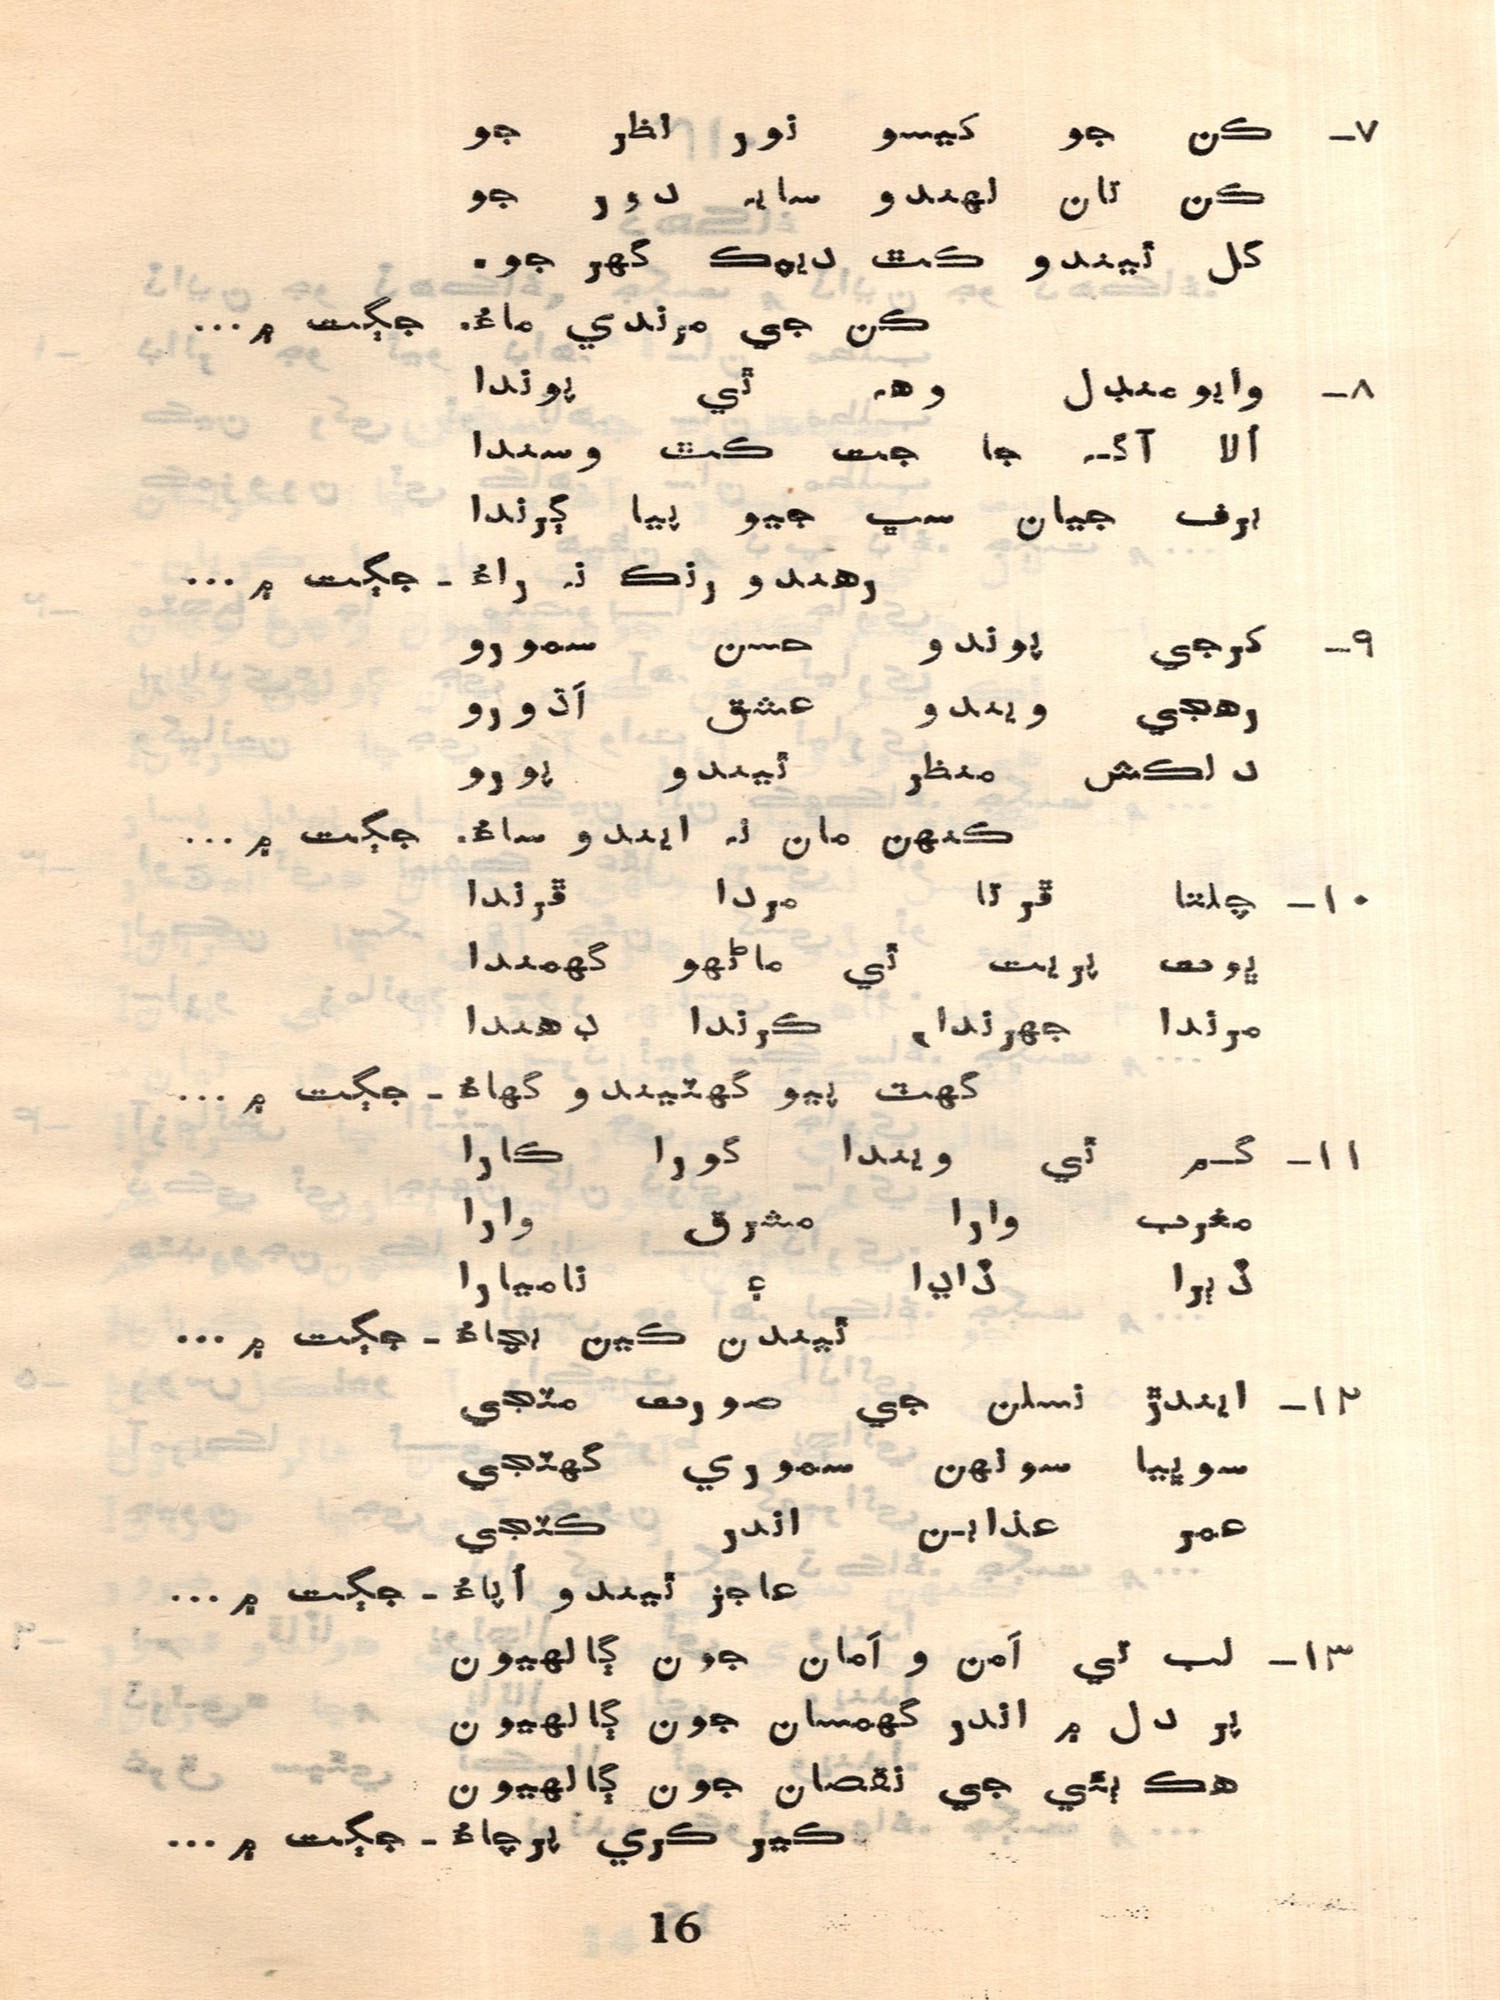 ۷ـ ڪن جو کيسو نور نظر جو
ڪن تان لهندو سايہ دور جو
گل ٿيندو ڪٿ ديپڪ گهر جو.
ڪن جي مرندي ماءُ. جڳت ۾...
۸ـ وايو منڊل وهہ ٿي پوندا
اُلا آگہ جا جت ڪٿ وسندا
برف جيان سڀ جيو پيا ڳرندا
رهندو رنڪ نہ راءُ ـ جڳت ۾...
۹ـ کرجي پوندو حسن سمورو
رهجي ويندو عشق اَڌورو
دلڪش منظر ٿيندو پورو
ڪنهن مان نہ ايندو ساءُ. جڳت ۾...
۱۰ـ چلندا ڦرندا مردا ڦرندا
ڀوت پريت ٿي ماڻهو گهمندا
مرندا جهرندا، ڪرندا ڊهندا
گهٽ پيو گهٽيندو گهاءُ ـ جڳت ۾...
۱۱ـ گم ٿي ويندا گورا ڪارا
مغرب وارا مشرق وارا
ڏٻرا ڏاڍا ۽ ناميارا
ٿيندن ڪين بچاءُ ـ جڳت ۾...
۱۲ـ ايندڙ نسلن جي صورت مٽجي
سوڀيا سونهن سموري گهٽجي
عمر عذابن اندر ڪٽجي
عاجز ٿيندو اُپاءُ ـ جڳت ۾...
۱۳ـ لب تي اَمن و اَمان جون ڳالهيون
پر دل ۾ اندر گهمسان جون ڳالهيون
هڪ ٻئي جي نقصان جون ڳالهيون
ڪير ڪري پرچاءُ ـ جڳت ۾...
16